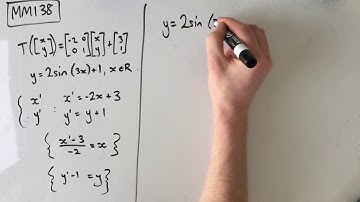 MM138
T([x y]) = [-2 0 0 1][x y] + [3 1]
y = 2sin (3x) + 1, x ∈ R.
{ x' : x' = -2x + 3
y' : y' = y + 1
{ x' - 3 / -2 = x }
{ y' - 1 = y }
y = 2sin (